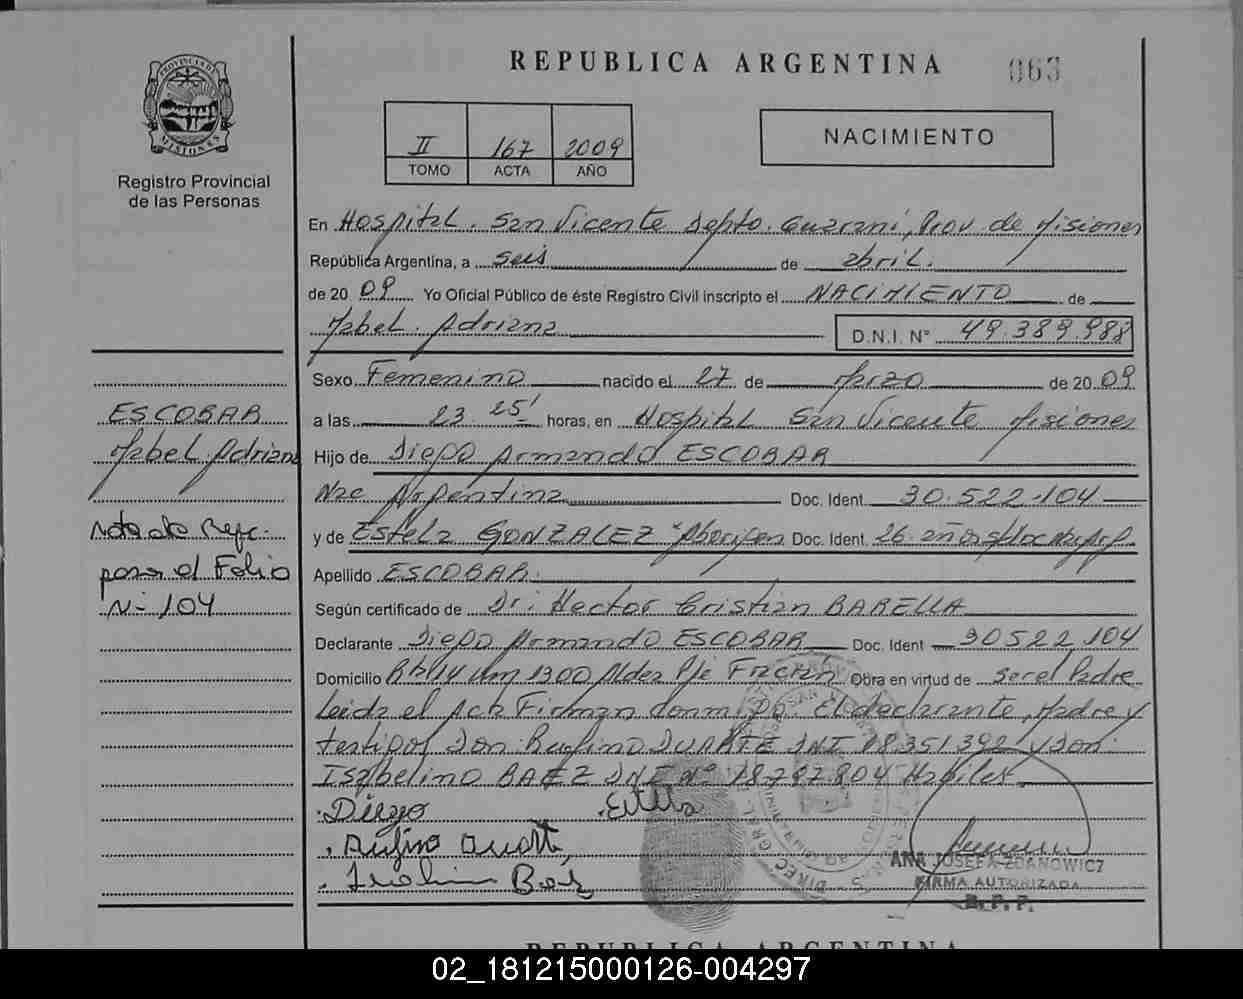 REPUBLICA ARGENTINA
063
PROVINCIA DE
MISIONES
Registro Provincial
de las Personas
II 167 2009
TOMO ACTA AÑO
NACIMIENTO
En Hospital. San Vicente Depto. Guarani, Prov. de Misiones
República Argentina, a seis de abril.
de 20 09 Yo Oficial Público de éste Registro Civil inscripto el NACIMIENTO de
Mabel. Adriana
D.N.I. Nº 49.389.988
Sexo Femenino nacido el 27 de Marzo de 20 09
a las 23.25' horas, en Hospital San Vicente Misiones
Hijo de Diego Armando ESCOBAR
Nac Argentina Doc. Ident. 30.522.104
y de Estela GONZALEZ Doc. Ident. 26 años
Apellido ESCOBAR.
Según certificado de Dr: Hector Cristian BARELLA
Declarante Diego Armando ESCOBAR Doc. Ident 30522.104
Domicilio Km 1300 Aldea Fracran Obra en virtud de ser el Padre
Leida el Acta Firman conmigo. El declarante, Madre y
testigos Don Rufino DUARTE DNI 18.351392 y Don:
Isabelino BAEZ DNI Nº 18.797.804 Habiles.
Diego Estela
Rufino Duarte
Baez
ANA JOSEFA ZDANOWICZ
FIRMA AUTORIZADA
R. P. P.
ESCOBAR
Mabel Adriana
Nota de Refe.
pasa al Folio
Nº 104
REPUBLICA ARGENTINA
02_181215000126-004297